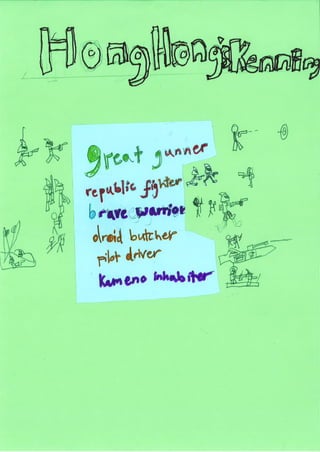 HongHong's Kenning
great gunner
republic fighter
brave warrior
droid butcher
pilot driver
Kameno inhabiter